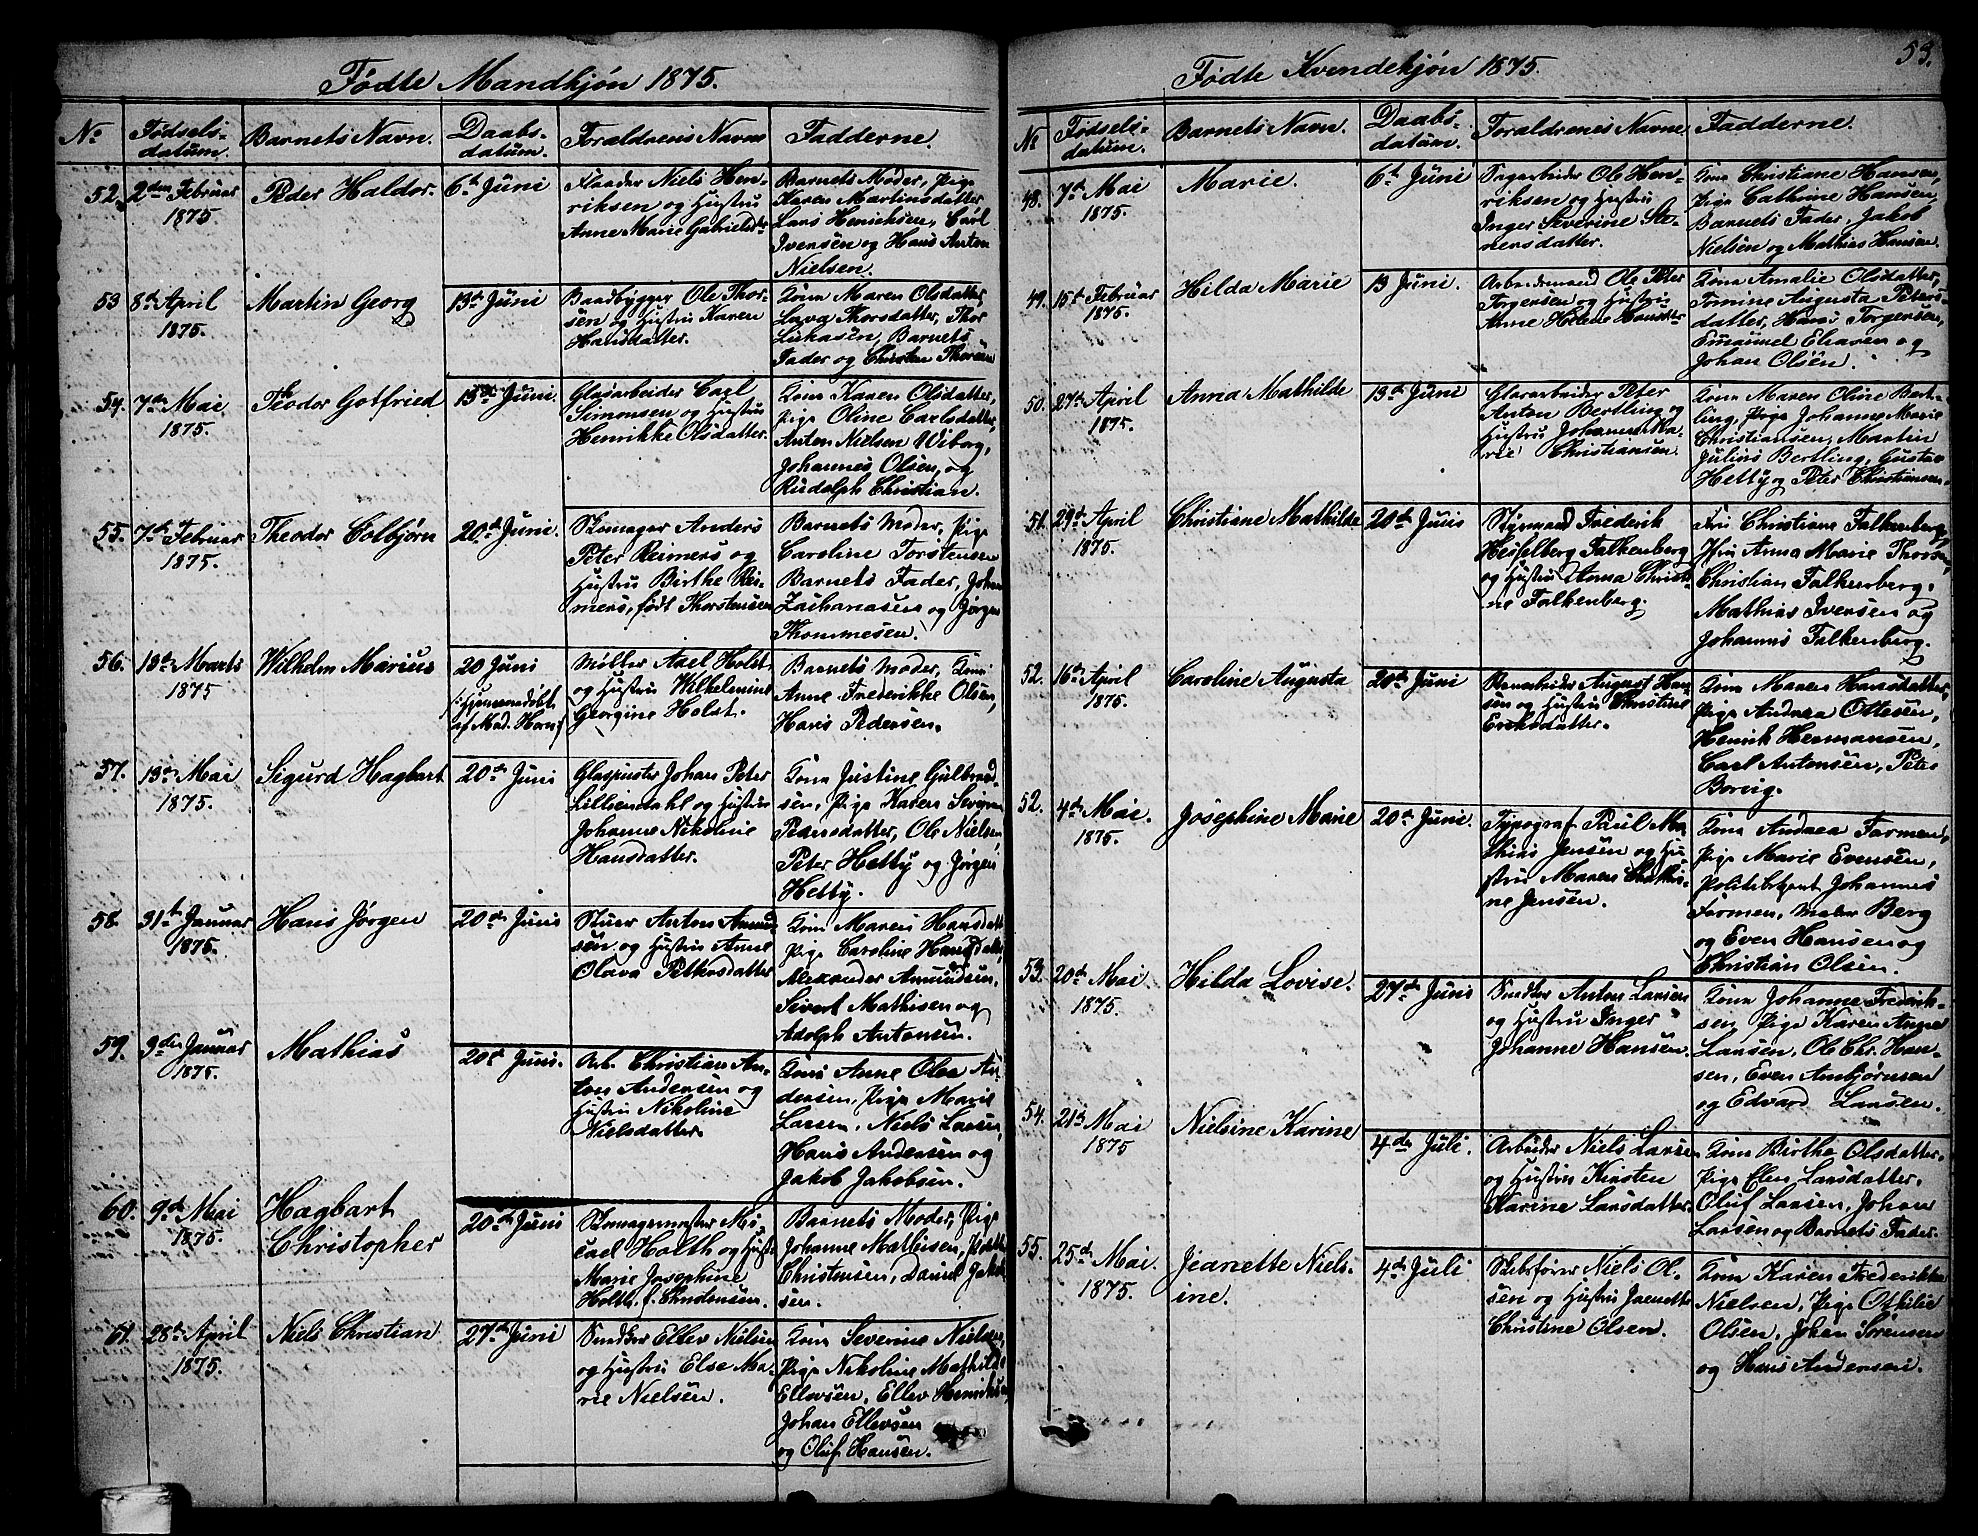 53.
Fødte Mandkjøn 1875.
No Fødsels-datum. Barnets Navn. Daabs-datum. Forældrenes Navne Fadderne.
52. 2den Februar 1875 Peder Haldor. 6te Juni
Niels Hen-
riksen og Hustru
Anne Marie Gabrielsdr
Barnets Moder, Pige
Karen Martinsdatter
Lars Henriksen, Carl
Iversen og Hans Anton
Nielsen.
53 8de April 1875. Martin Georg 13de Juni
Baadbygger Ole Thor-
sen og Hustru Karen
Hansdatter.
Kone Maren Olsdatter
Lava Thorsdatter, Thor
Lukasen, Barnets
Fader og Christen Thorsen
54. 7de Mai 1875. Theodor Gotfried 13de Juni.
Glasarbeider Carl
Simonsen og Hustru
Henrikke Olsdatter.
Kone Karen Olsdatter,
Pige Oline Carlsdatter,
Anton Nielsen Wiborg,
Johannes Olsen, og
Rudolph Christian.
55. 7de Februar 1875. Theodor Colbjørn 20de Juni.
Skomager Anders
Peter Reimers og
Hustru Birthe Rei-
mers, født Thorstensen
Barnets Moder, Pige
Caroline Torstensen
Barnets Fader, Johan
Zachariasen og Jørgen
Thommesen.
56. 18de Marts 1875 Wilhelm Marius 20 Juni
/: Hjemmedøbt
af Mad. Horn /
Møller Axel Holst
og Hustru Wilhelmine
Georgine Holst.
Barnets Moder, Kone
Anne Frederikke Olsen,
Hans Pedersen.
57. 13de Mai 1875. Sigurd Hagbart 20de Juni
Glaspuster Johan Peter
Lilliendahl og Hustru
Johanne Nikoline
Hansdatter.
Kone Justine Gulbrand-
sen, Pige Karen
Hansdatter, Ole Nielsen
Peter Hetty og Jørgen
Hetty.
58. 31te Januar 1875. Hans Jørgen 20de Juni
Stuer Anton Amund-
sen og Hustru Anne
Olava Pettersdatter
Kone Maren Hansdatt
Pige Caroline Hansdatter,
Alexander Amundsen,
Sivert Mathisen og
Adolph Antonsen.
59. 9de Januar 1875. Mathias 20de Juni.
Arb. Christian An-
ton Andersen og
Hustru Nikoline
Nielsdatter.
Kone Anne Olea An-
dersen, Pige Marie
Larsen, Niels Larsen,
Hans Andersen og
Jakob Jakobsen.
60. 9de Mai 1875. Hagbart Christopher 20de Juni
Skomagermester Mi-
cael Holth og Hustr
Marie Josephine
Holth f. Christensen.
Barnets Moder, Pige
Johanne Mathisen, Peder
Christensen, Daniel Jakob-
sen.
61. 28de April 1875. Niels Christian 27de Juni
Snedker Ellev Nielsen
og Hustru Else Ma-
rie Nielsen.
Kone Severine Nielsen,
Pige Nikoline Mathilde
Ellevsen, Ellev Henriksen,
Johan Ellevsen
og Oluf Hansen.
Fødte Kvindekjøn 1875.
No Fødsels-datum. Barnets Navn. Daabs-datum. Forældrenes Navne Fadderne.
48. 7de Mai 1875. Marie. 6te Juni
Sagarbeider Ole Hen-
riksen og Hustru
Inger Severine Ste-
nersdatter.
Kone Christiane Hansen,
Pige Cathrine Hansen,
Barnets Fader, Jakob
Nielsen og Mathias Hansen.
49. 15de Februar 1875. Hilda Marie 13 Juni.
Arbeidsmand Ole Peter
Jørgensen og Hustru
Anne Helene Hansdtr
Kone Amalie Olsdatter,
Tomine Augusta Peters-
datter, Hans Jørgensen,
Emanuel Eliasen og
Johan Olsen.
50. 27de April 1875. Anna Mathilde 13de Juni
Glasarbeider Peter
Anton Bertling og
Hustru Johanne Ma-
rie Christiansen
Kone Maren Oline Bert-
ling, Pige Johanne Marie
Christiansen, Martin
Julius Bertling, Gustav
Hetty og Peter Christiansen.
51. 29de April 1875. Christiane Mathilde 20de Juni
Styrmand Frederik
Hesselberg Falkenberg
og Hustru Anna Christi-
ne Falkenberg.
Fru Christiane Falkenberg,
Jfru Anna Marie Thorsen,
Christian Falkenberg.
Mathias Iversen og
Johannes Falkenberg.
52. 16de April 1875. Caroline Augusta 20de Juni
Stenarbeider August Han-
sen og Hustru Christine
Eriksdatter.
Kone Maren Hansdatter,
Pige Andrea Ottesen,
Henrik Hermansen,
Carl Antonsen, Peter
Borvig.
52. 4de Mai. 1875. Josephine Marie 20de Juni.
Typograf Paul Ma-
thias Jensen og Hu-
stru Maren Mathi-
ne Jensen.
Kone Andrea Formen,
Pige Marie Evensen,
Politibetjent Johannes
Formen, Maler Berg
og Even Hansen og
Christian Olsen.
53. 20de Mai 1875. Hilda Lovise. 27de Juni
Snedker Anton Larsen
og Hustru Inger
Johanne Hansen.
Kone Johanne Fredrik-
sen, Pige Karen Anne
Larsen, Ole Chr. Han-
sen, Even Ambjørnsen
og Edvard Larsen.
54. 21de Mai 1875 Nielsine Karine 4de Juli.
Arbeider Niels Larsen
og Hustru Kirsten
Karine Larsdatter.
Kone Birthe Olsdatter.
Pige Elen Larsdatter.
Oluf Larsen, Johan
Larsen og Barnets Fader.
55. 25de Mai. 1875. Jeanette Niels-
ine. 4de Juli
Skibsfører Niels Ol-
sen og Hustru Jeanette
Christine Olsen.
Kone Karen Frederikke
Nielsen, Pige Othilie
Olsen, Johan Sørensen
og Hans Andersen.